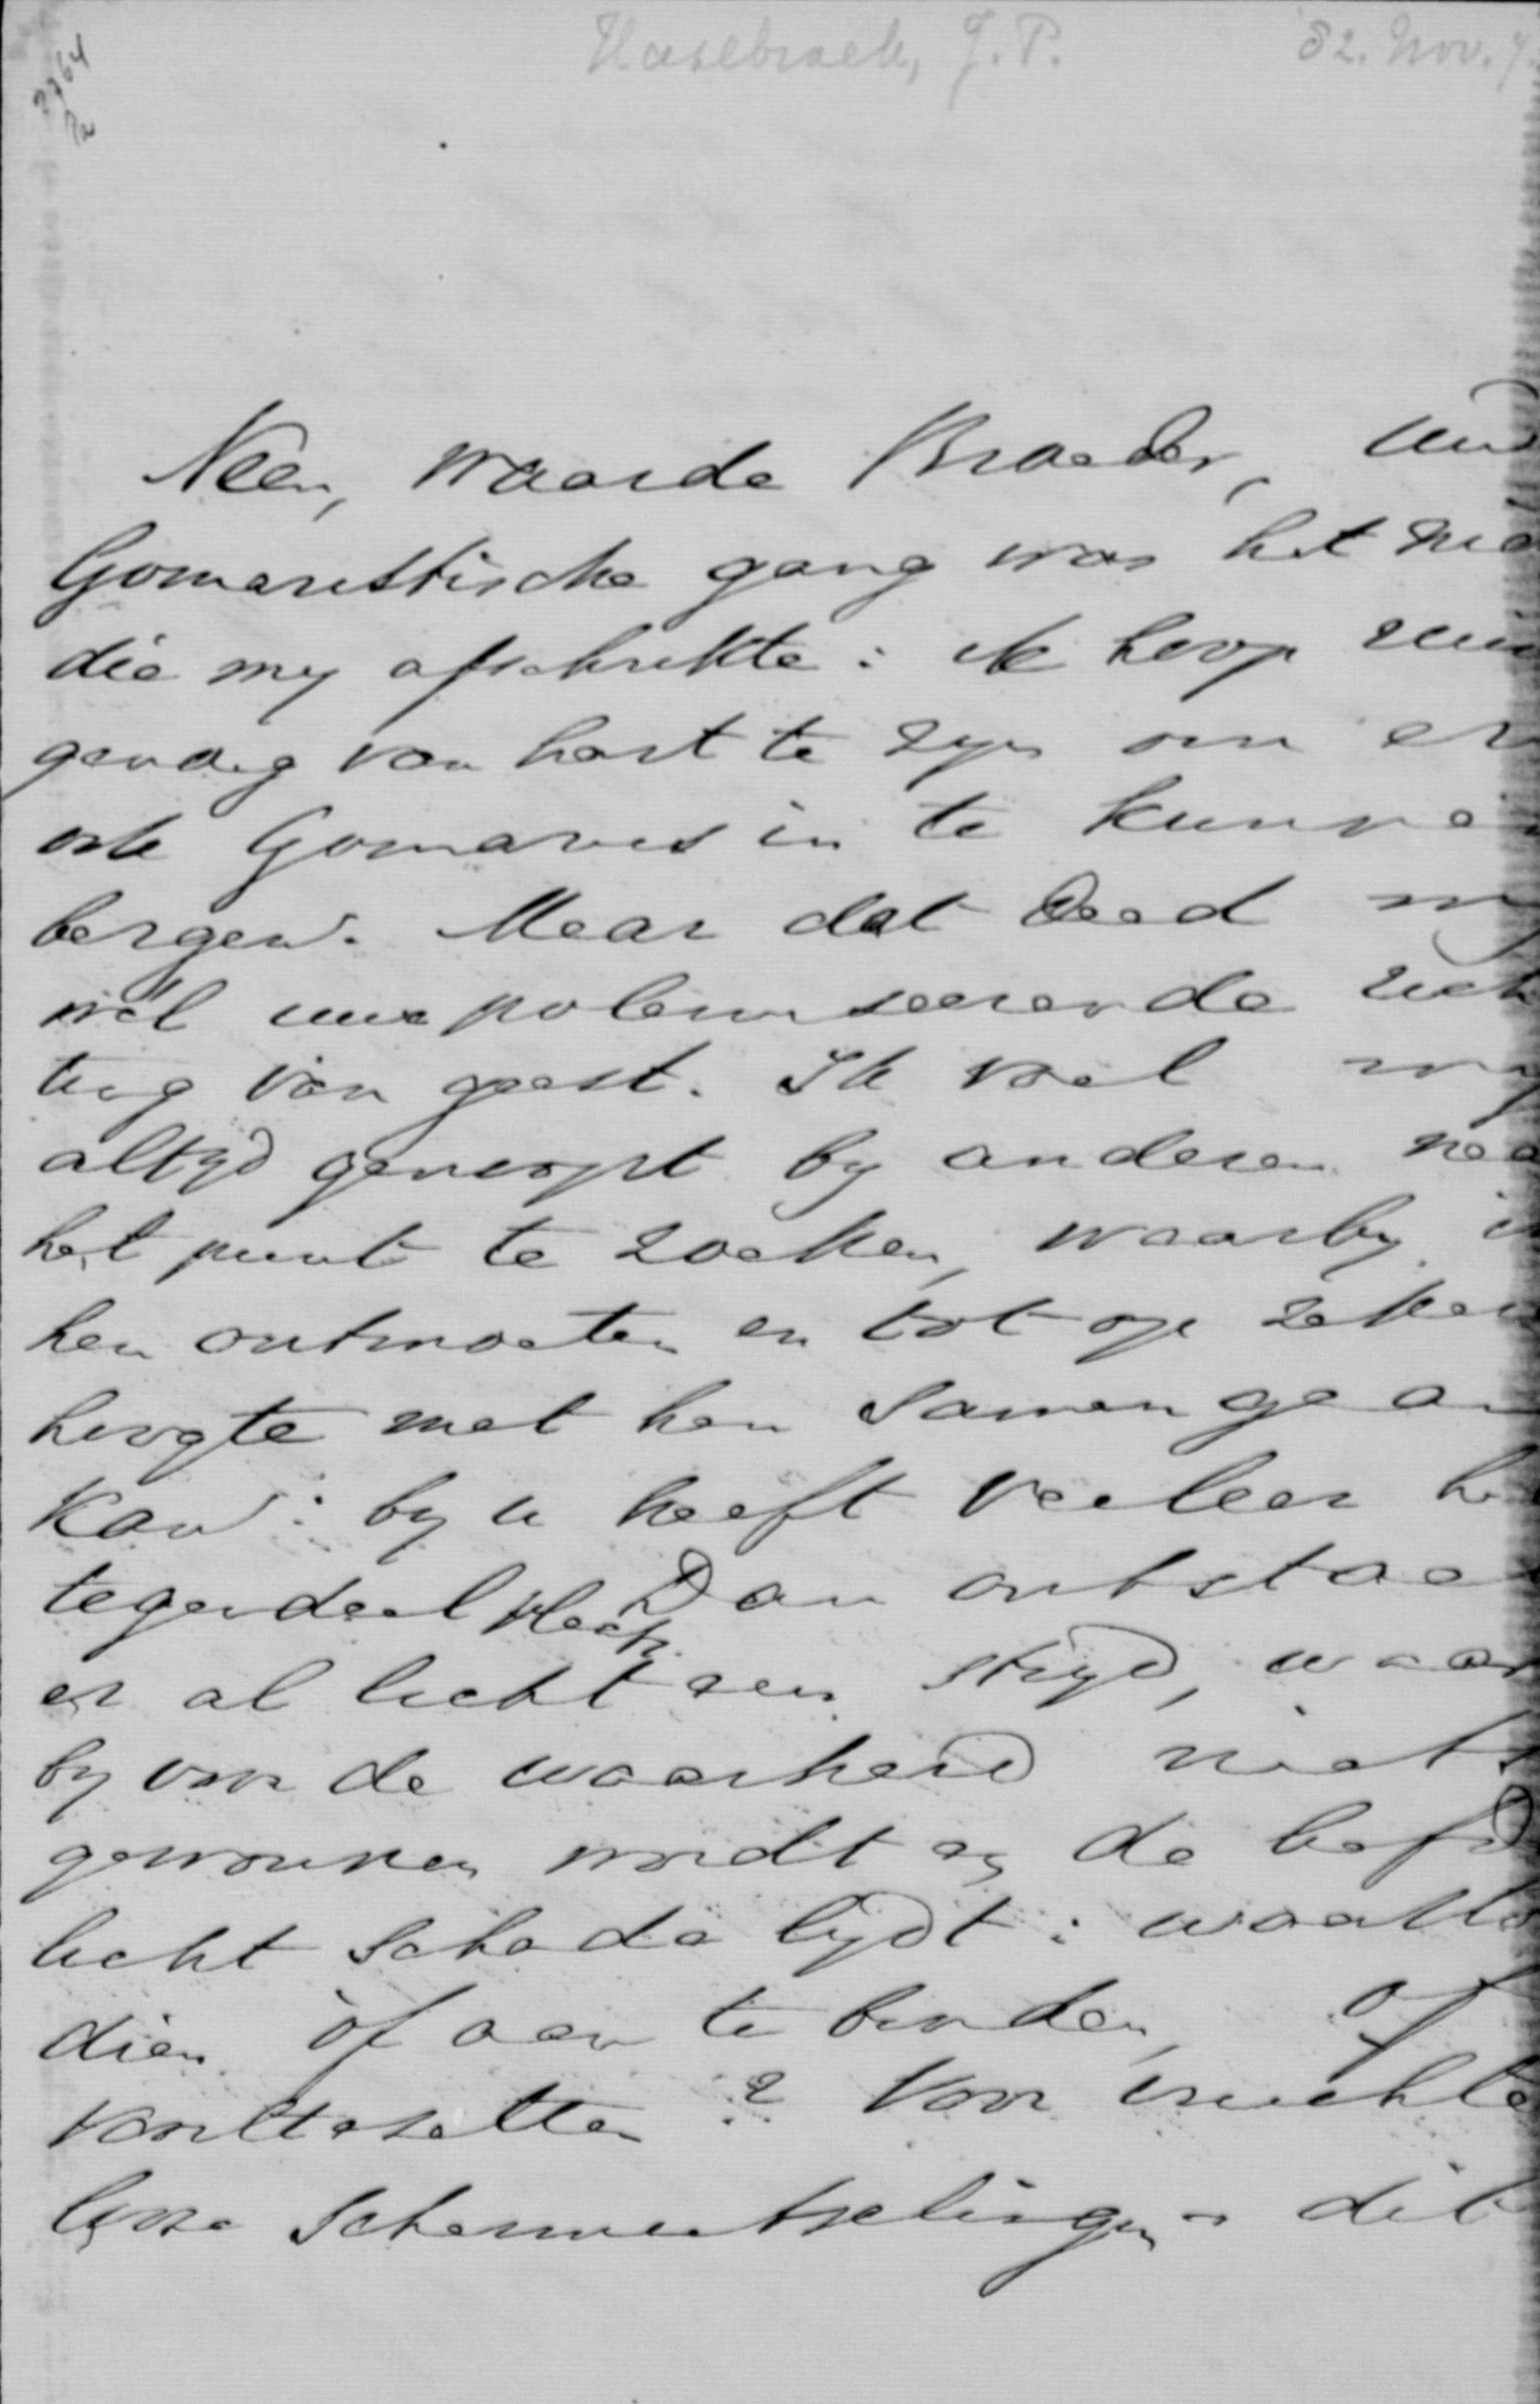 Hasebroek, J. P. 82. Nov. 7
2764
Pa
Neen, waarde Broeder, uw
Gomaristische gang was het nie
die my afschrikte: ik hoop ruim
genoeg van hart te zyn om er
ook Gomarus in te kunne
bergen. Maar dat deed my
wél uwe polemiseerende rich
ting van geest. Ik voel my
altyd genoopt by anderen naa
het punt te zoeken, waarby i
hen ontmoeten en tot op zeker
hoogte met hen samengaan
kan: by u heeft veeleer he
tegendeel plaats. Dan ontstaa
er al licht een stryd, waar
by voor de waarheid niets
gewonnen wordt en de liefd
licht schade lydt: waarto
dien òf aan te binden, òf
voorttezetten? Voor vruchte
loze schermutselingen dit